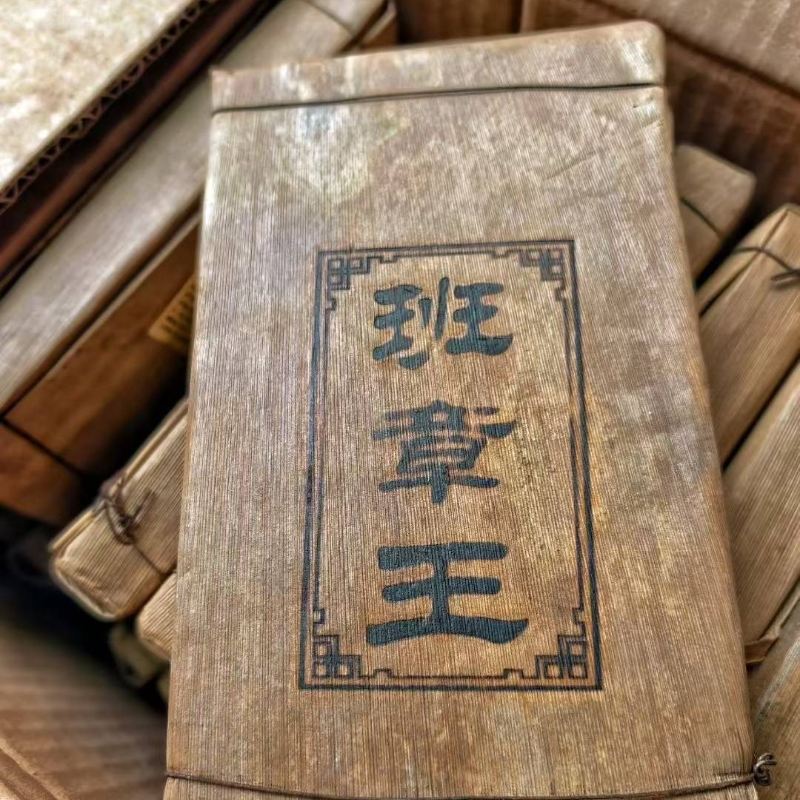 班
章
王